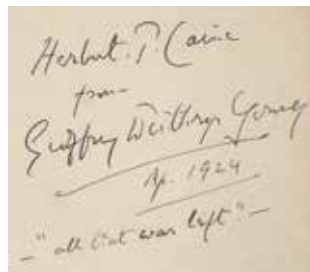 Herbert. P. Caine
from
Geoffrey Winthrop Young
Ap. 1924
- "all that was left" -